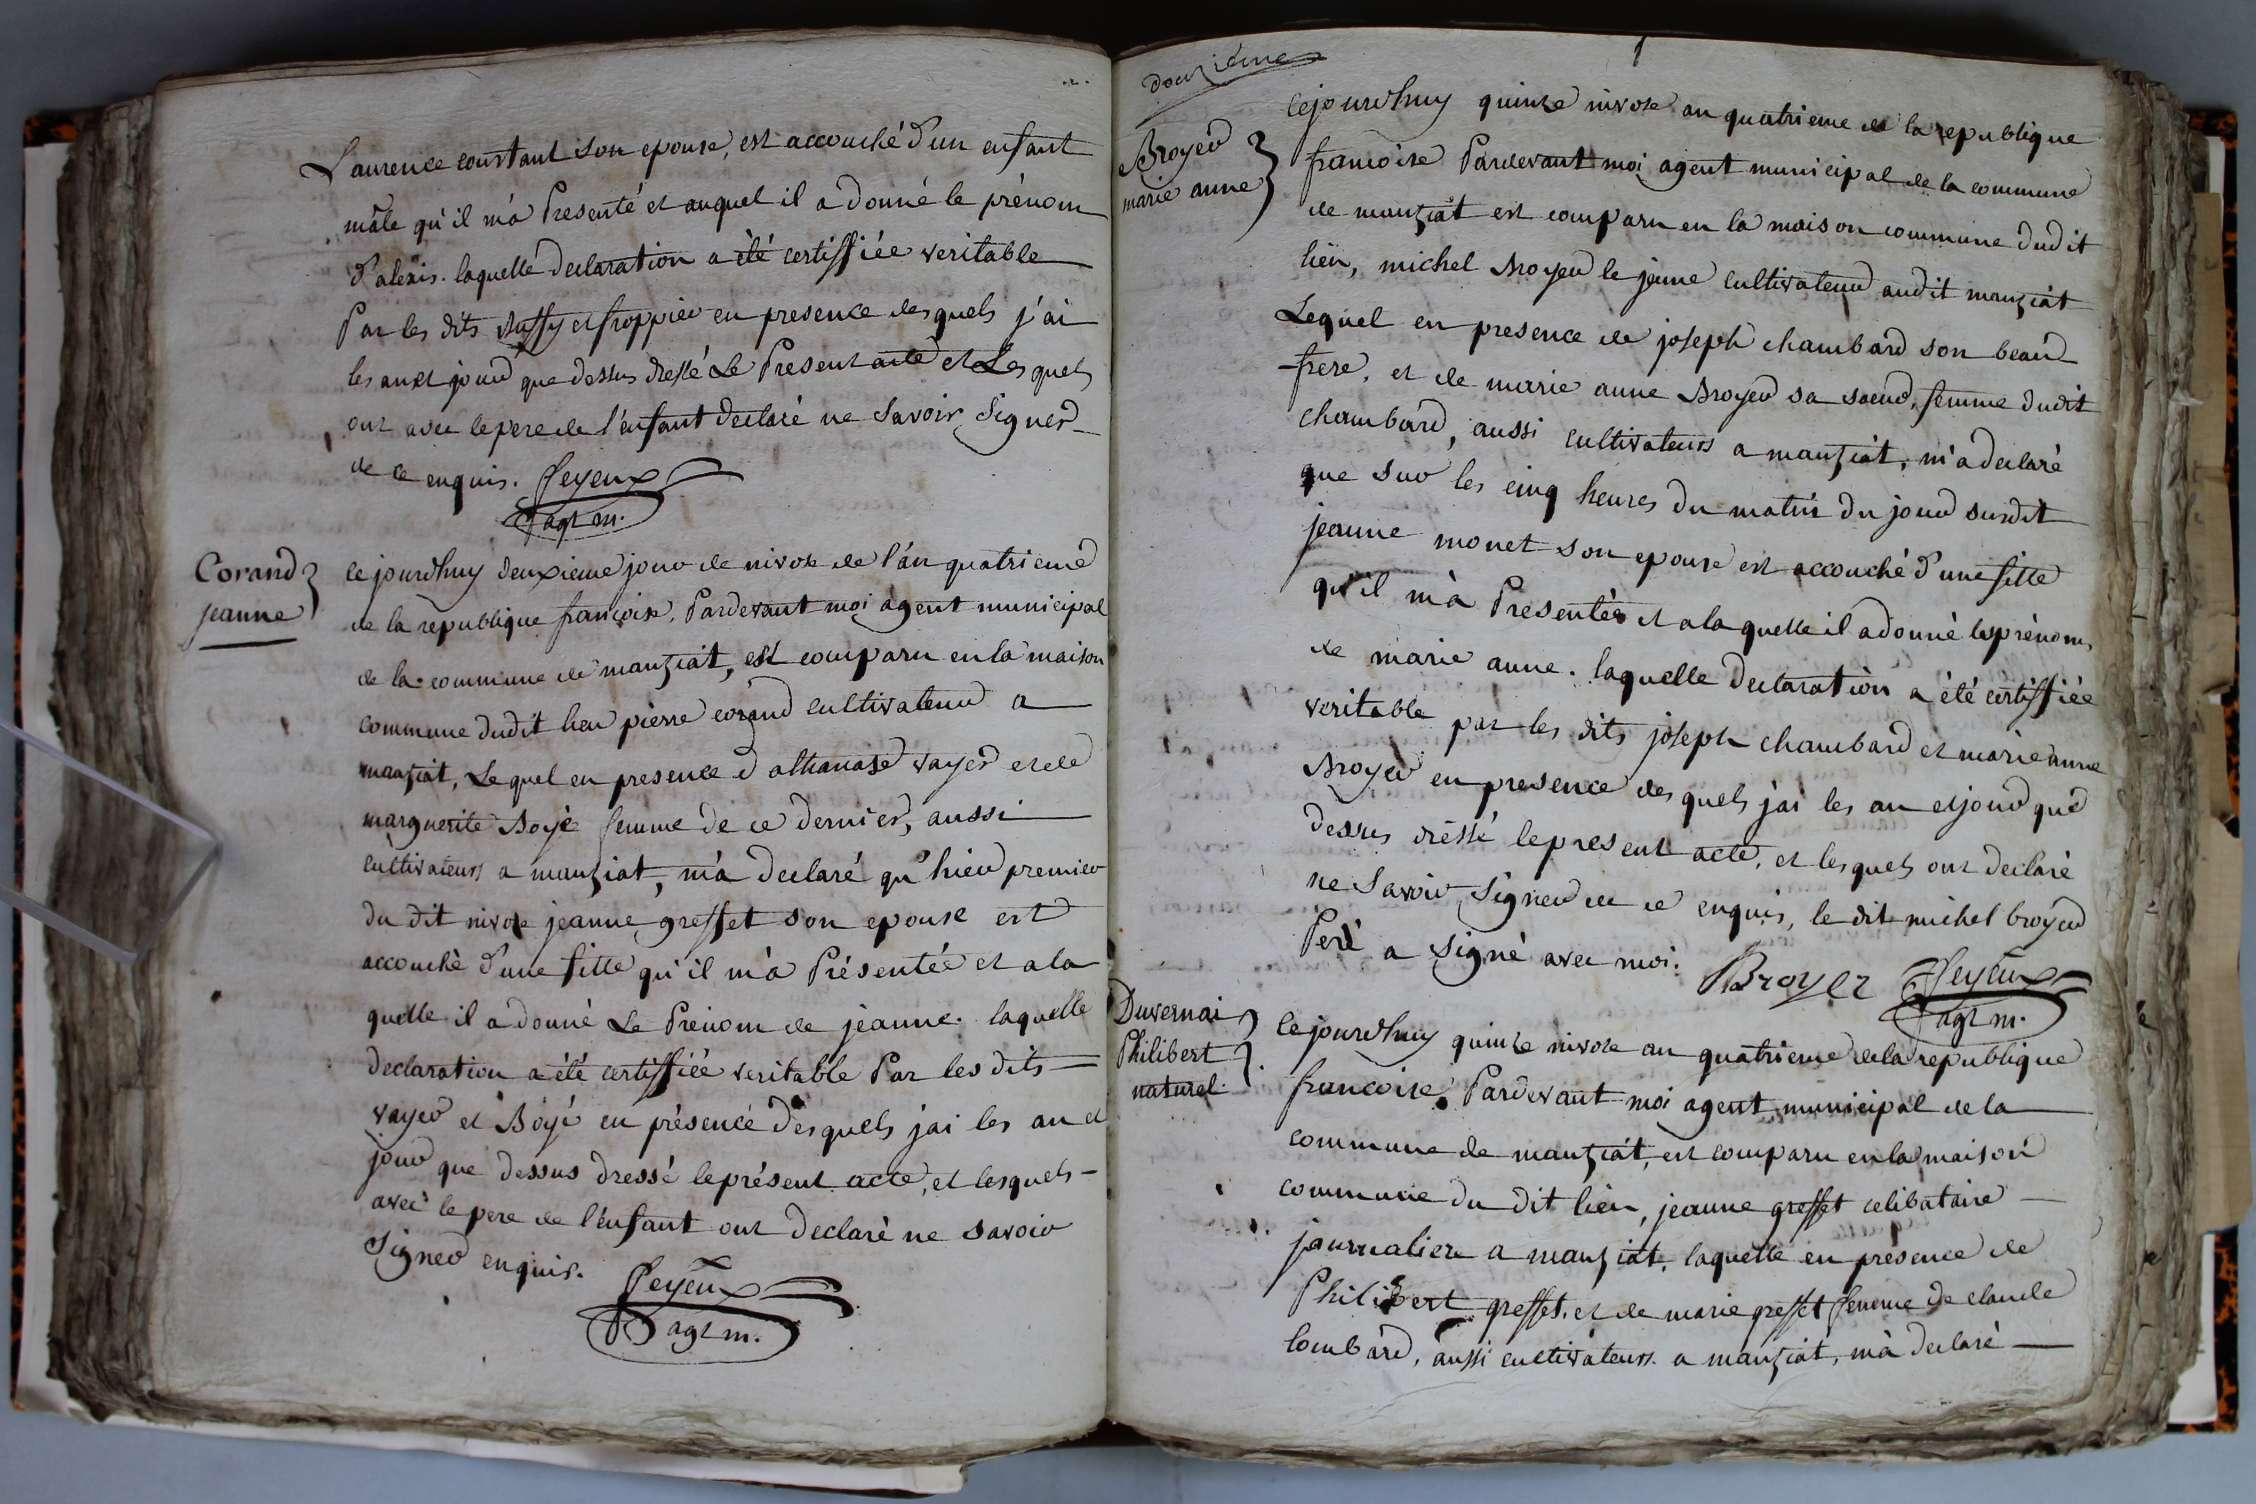 Laurence constant son epouse, est accouché d'un enfant
mâle qu'il m'a Presenté et auquel il a donné le prénom
d'alexis. laquelle declaration a été certiffiée veritable
Par les dits et froppier en presence des quels j'ai
les an et jour que dessus dressé Le Present acte et Les quels
ont avec le pere de l'enfant declaré ne Savoir Signer
de ce enquis. feyeux
agt m.
Corand
jeanne
cejourdhuy deuxieme jour de nivose de l'an quatrieme
de la republique françoise, Pardevant moi agent municipal
de la commune de manziat, est comparu en la maison
commune dudit lieu pierre corand cultivateur a
manziat, Lequel en presence d'athanase vayer et de
marguerite Boyé femme de ce dernier, aussi
cultivateurs a manziat, m'a declaré qu'hier premier
du dit nivose jeanne greffet son epouse est
accouché d'une fille qu'il m'a Présentée et a la
quelle il a donné Le Prénom de jeanne. laquelle
declaration a été certiffiée veritable Par les dits
vayer et Boyé en présence desquels j'ai les an et
jour que dessus dressé le présent acte, et lesquels
avec le pere de l'enfant ont declaré ne savoir
Signer enquis. feyeux
agt m.
douzieme
1
Broyer
marie anne
cejourdhuy quinze nivose an quatrieme de la republique
francoise Pardevant moi agent municipal de la commune
de manziat est comparu en la maison commune dudit
lieu, michel Broyer le jeune cultivateur audit manziat
Lequel en presence de joseph chambard son beau
frere, et de marie anne Broyer sa soeur, femme dudit
chambard, aussi cultivateurs a manziat, m'a declaré
que sur les cinq heures du matin du jour susdit
jeanne monet son epouse est accouché d'une fille
qu'il m'a Presentée et a laquelle il a donné les prénoms
de marie anne. laquelle declaration a été certiffiée
veritable par les dits joseph chambard et marie anne
Broyer en presence des quels j'ai les an et jour que
dessus dressé le present acte, et lesquels ont declaré
ne Savoir Signer de ce enquis, le dit michel broyer
Peré a Signé avec moi. Broyer feyeux
agt m.
Duvernai
Philibert
naturel.
cejourdhuy quinze nivose an quatrieme de la republique
francoise, Pardevant moi agent municipal de la
commune de manziat, est comparu en la maison
commune du dit lieu, jeanne greffet celibataire
journaliere a manziat, laquelle en présence de
Philibert greffet, et de marie greffet femme de claude
lombard, aussi cultivateurs a manziat, m'a declaré